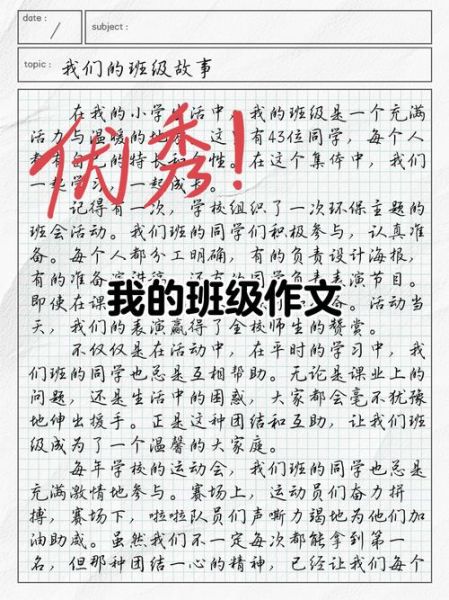 date :
subject :
topic : 我们的班级故事
在我的小学生活中，我的班级是一个充满
活力与温暖的地方。这里有43位同学，每个人
都有自己的特长和个性。在这个集体中，我们
一起学习，一起成长。
优秀！
记得有一次，学校组织了一次环保主题的
班会活动。我们班的同学们积极参与，认真准
备。每个人都分工明确，有的负责设计海报，
有的准备演讲稿，还有的同学负责表演节目。
即使在课
备。活动当
我的班级作文
天，我们的表演赢得了全校师生的赞赏。
不仅仅是在活动中，在平时的学习中，我
们班的同学也总是互相帮助。无论是课业上的
问题，还是生活中的困惑，大家都会毫不犹豫
地伸出援手。正是这种团结和互助，让我们班
级成为了一个温馨的大家庭。
每年学校的运动会，我们班的同学也总是
充满激情地参与。赛场上，运动员们奋力拼
搏，赛场下，啦啦队员们声嘶力竭地为他们加
油助威。虽然我们不一定每次都能拿到第一
名，但那种团结一心的精神，已经让我们每个